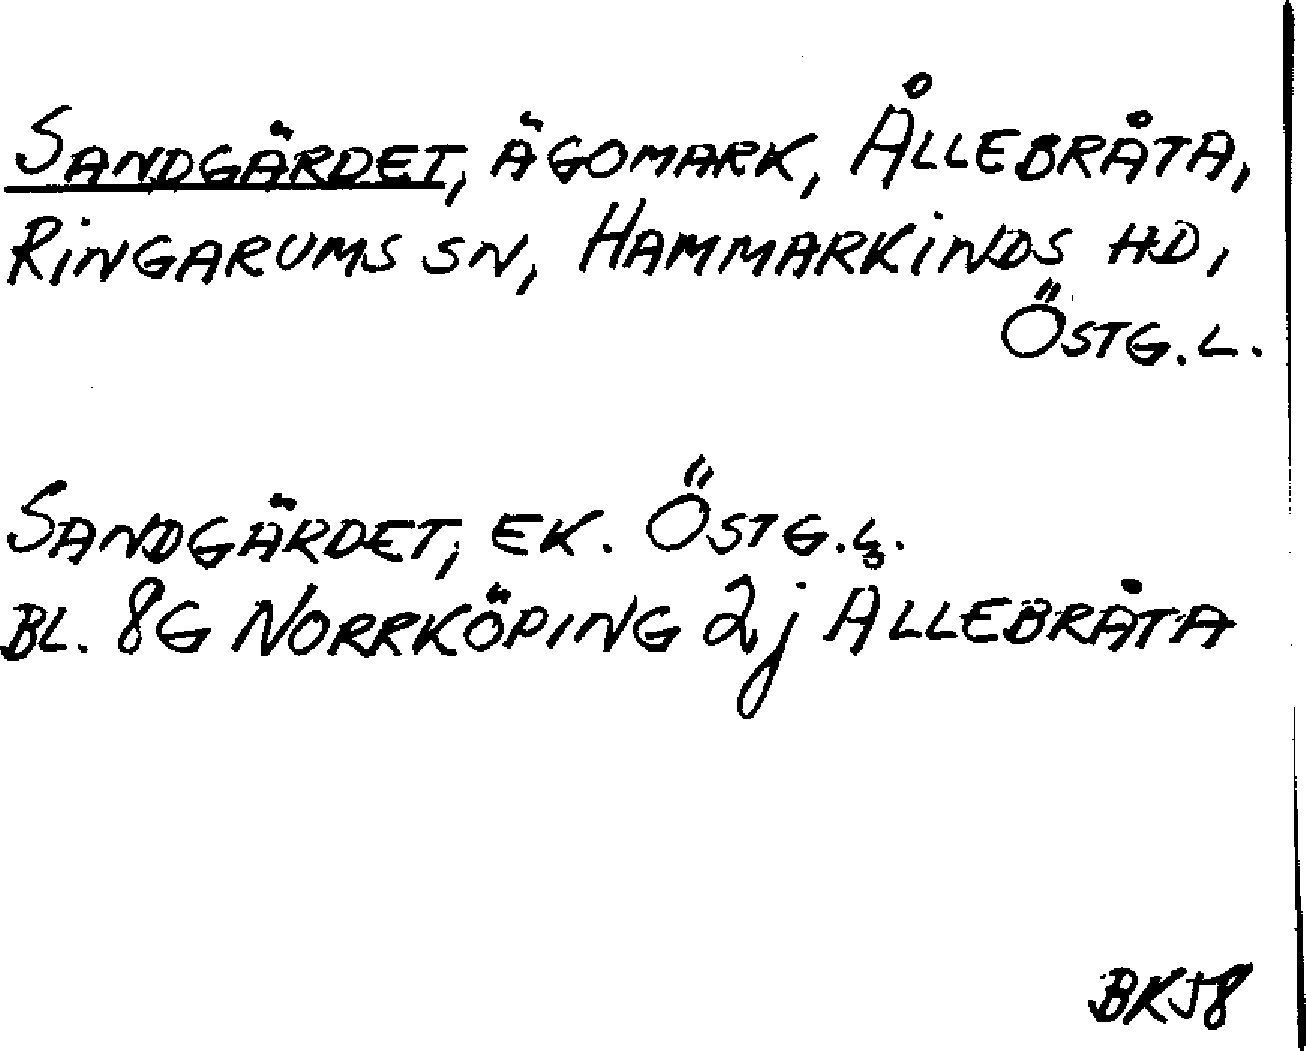 SANDGÄRDET, ÄGOMARK, ÅLLEBRÅTA,
RINGARUMS SN, HAMMARKINDS HD,
ÖSTG. L.
SANDGÄRDET, EK. ÖSTG. 43.
BL. 8G NORRKÖPING 2j ALLEBRÅTA
BK58